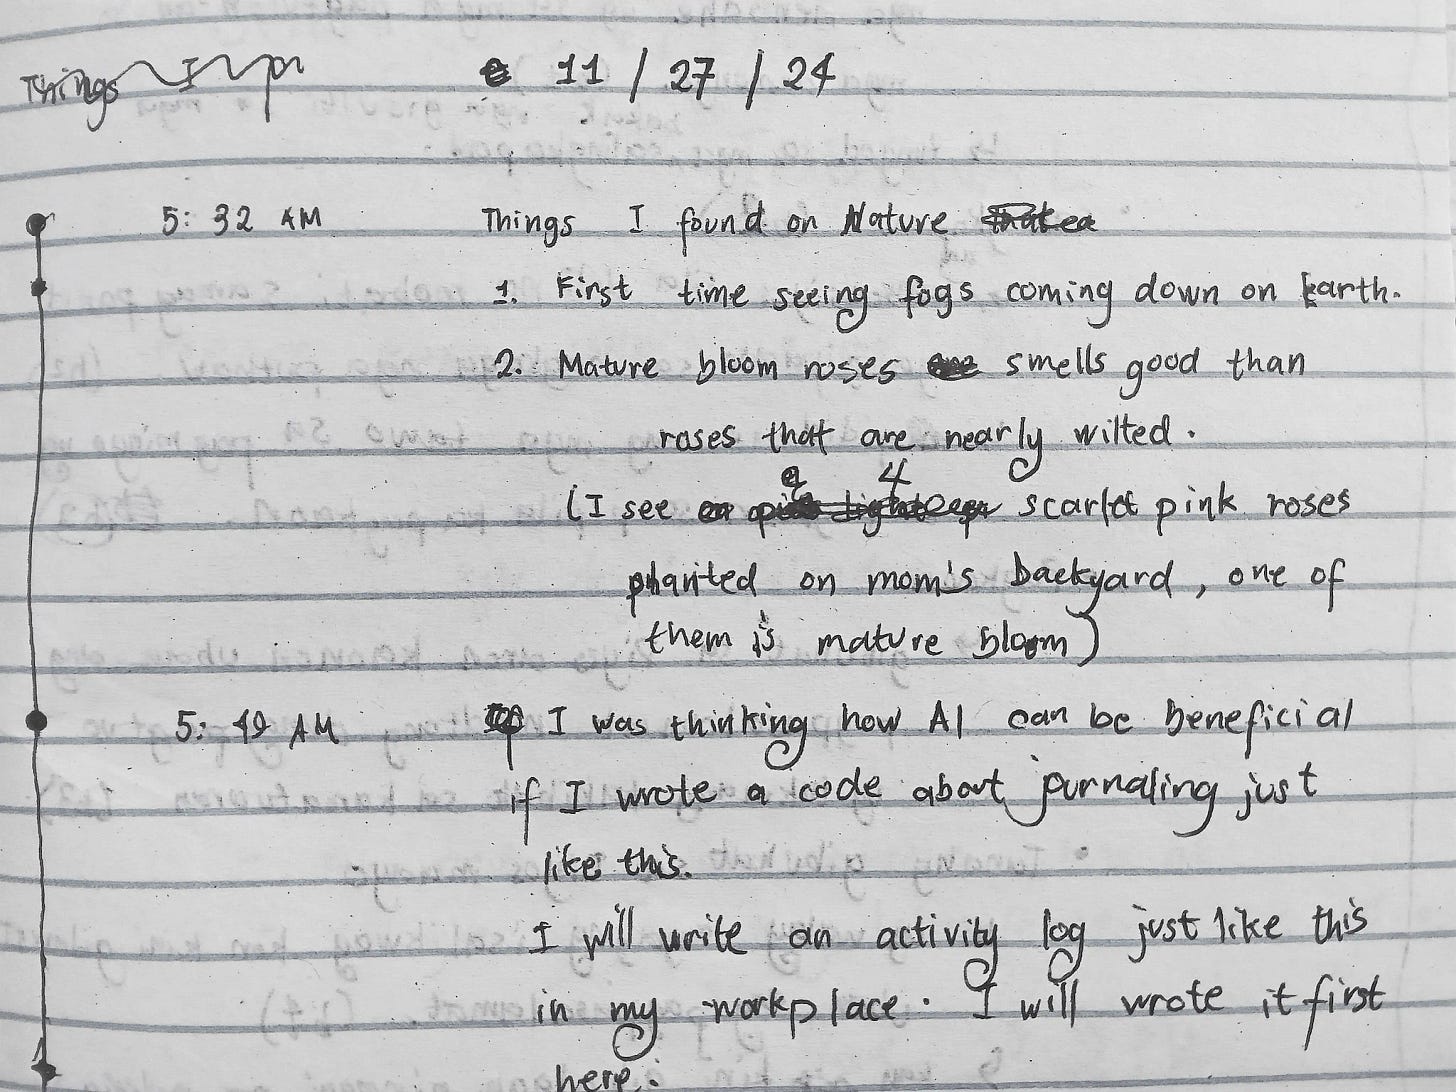 Things I 11 / 27 / 24
5: 32 AM Things I found on Nature
1. First time seeing fogs coming down on Earth.
2. Mature bloom roses smells good than
roses that are nearly wilted.
4
(I see scarlet pink roses
planted on mom's backyard, one of
them is mature bloom)
5: 49 AM I was thinking how AI can be beneficial
if I wrote a code about journaling just
like this.
I will write an activity log just like this
in my workplace. I will wrote it first
here.